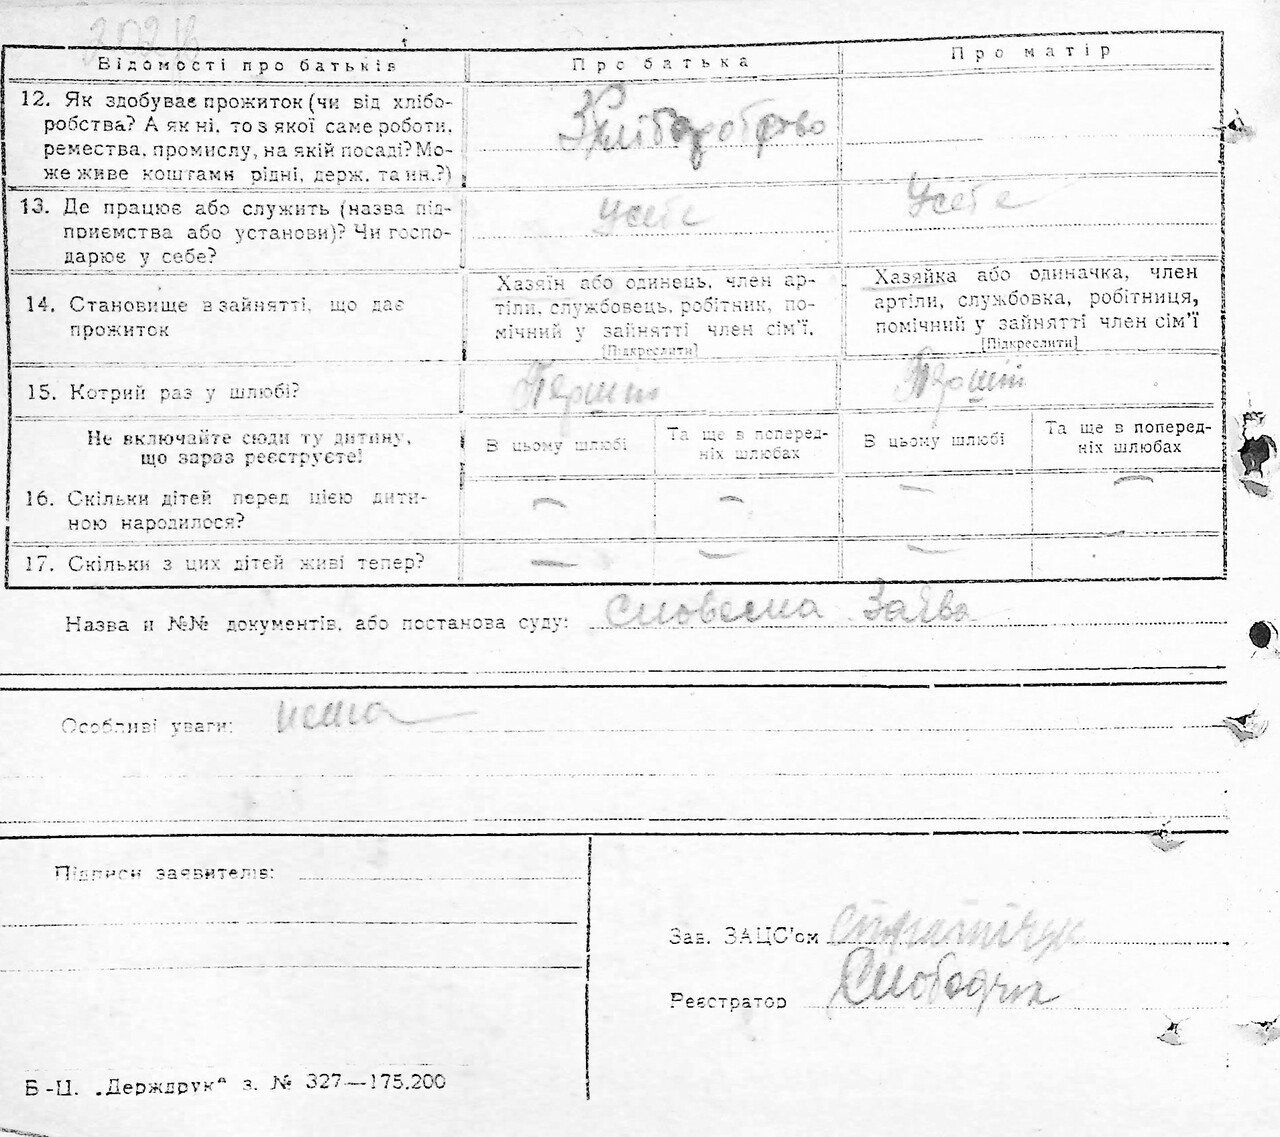 Відомості про батьків
Про батька
Про матір
12. Як здобуває прожиток (чи від хлібо-
робства? А як ні, то з якої саме роботи,
ремества, промислу, на якій посаді? Мо-
же живе коштами рідні, держ. та ин.?)
Хліборобство
13. Де працює або служить (назва під-
приємства або установи)? Чи госпо-
дарює у себе?
Усебе
Усебе
14. Становище в зайнятті, що дає
прожиток
Хазяїн або одинець, член ар-
тіли, службовець, робітник, по-
мічний у зайнятті член сім'ї.
[Підкреслити]
Хазяйка або одиначка, член
артіли, службовка, робітниця,
помічний у зайнятті член сім'ї
[Підкреслити]
15. Котрий раз у шлюбі?
Перший
Перший
Не включайте сюди ту дитину,
що зараз реєструєте!
В цьому шлюбі
Та ще в поперед-
ніх шлюбах
В цьому шлюбі
Та ще в поперед-
ніх шлюбах
16. Скільки дітей перед цією дити-
ною народилося?
— — — —
17. Скільки з цих дітей живі тепер?
— — — —
Назва и №№ документів, або постанова суду: Словесна Заява
Особливі уваги: нема
Підписи заявителів:
Зав. ЗАЦС'ом
Реєстратор
Б-Ц. „Держдрук“ з. № 327—175.200